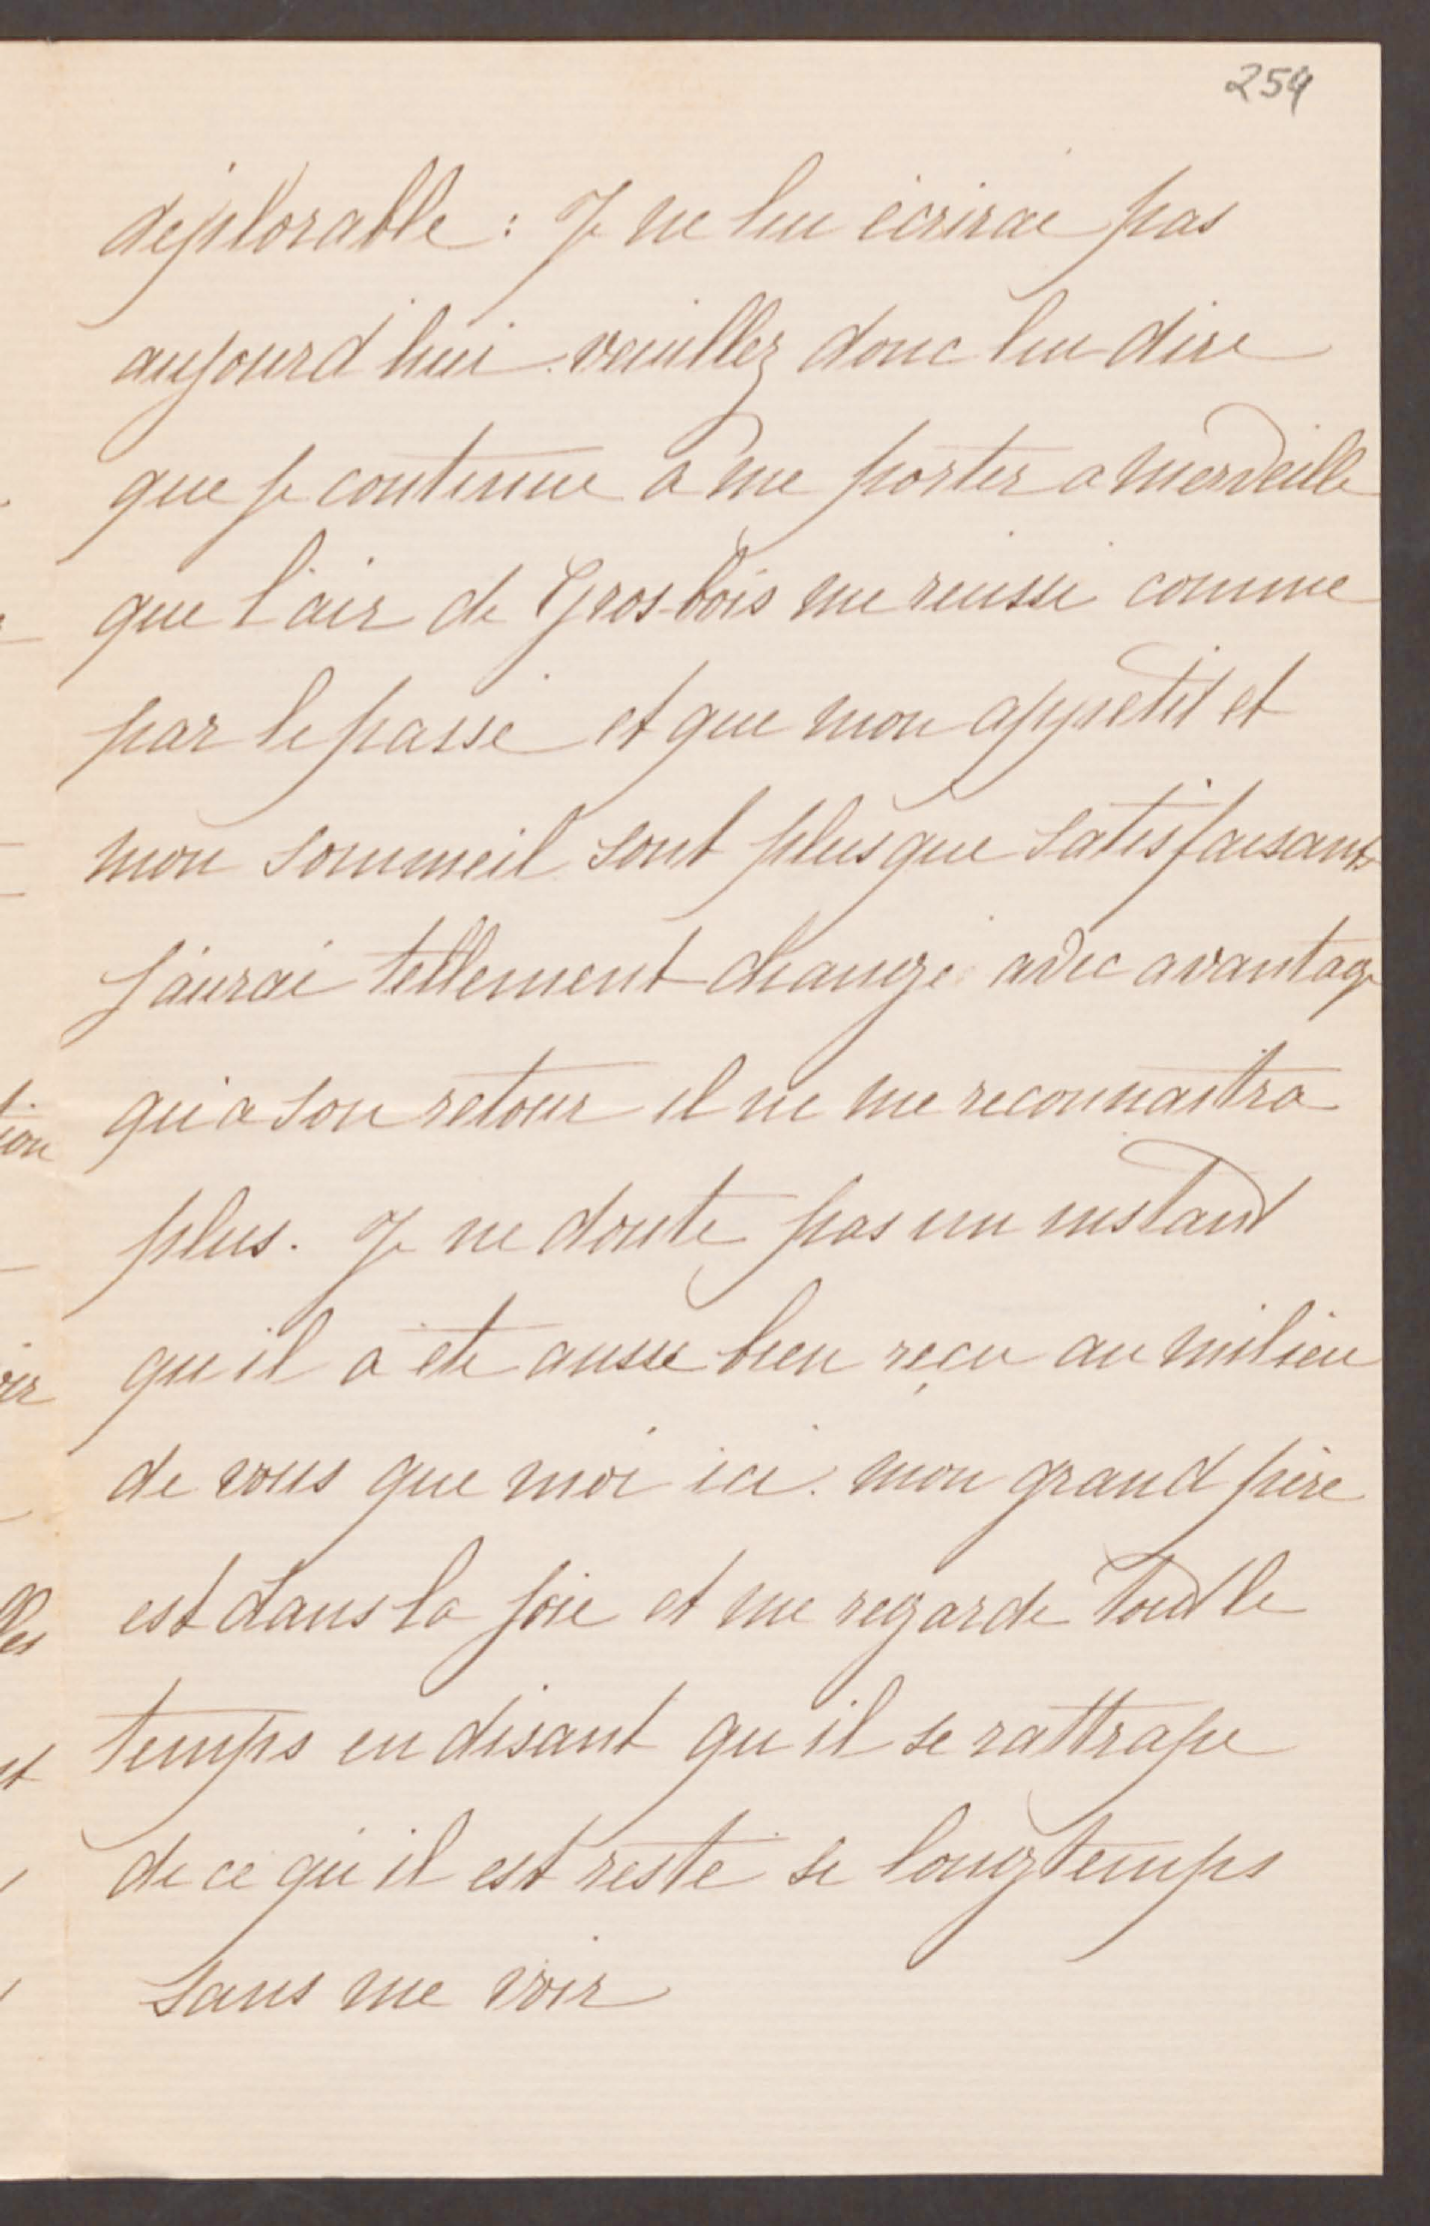 254
déplorable : Je ne lui écrirai pas
aujourd'hui veuillez donc lui dire
que je continue à me porter a merveille
que l'air de Grosbois me reussi comme
par le passé et que mon appetit et
mon sommeil sont plus que satisfaisants
J'aurai tellement changé avec avantage
qu'a son retour il ne me reconnaitra
plus. Je ne doute pas un instant
qu'il a été aussi bien reçu au milieu
de vous que moi ici. mon grand père
est dans la joie et me regarde tout le
temps en disant qu'il se rattrape
de ce qu'il est resté si longtemps
sans me voir
tion